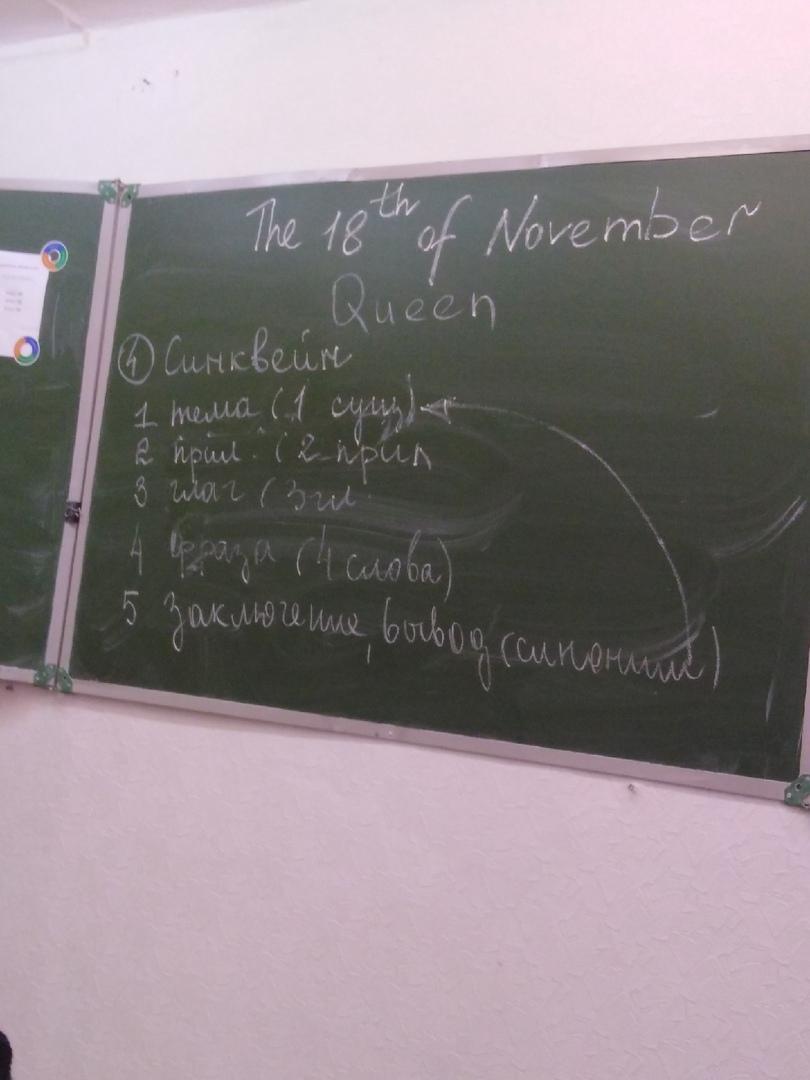 The 18th of November
Queen
④ Синквейн
1 тема (1 сущ)
2 прил. (2 прил
3 глаг (3 гл.
4 фраза (4 слова)
5 Заключение, вывод (синоним)